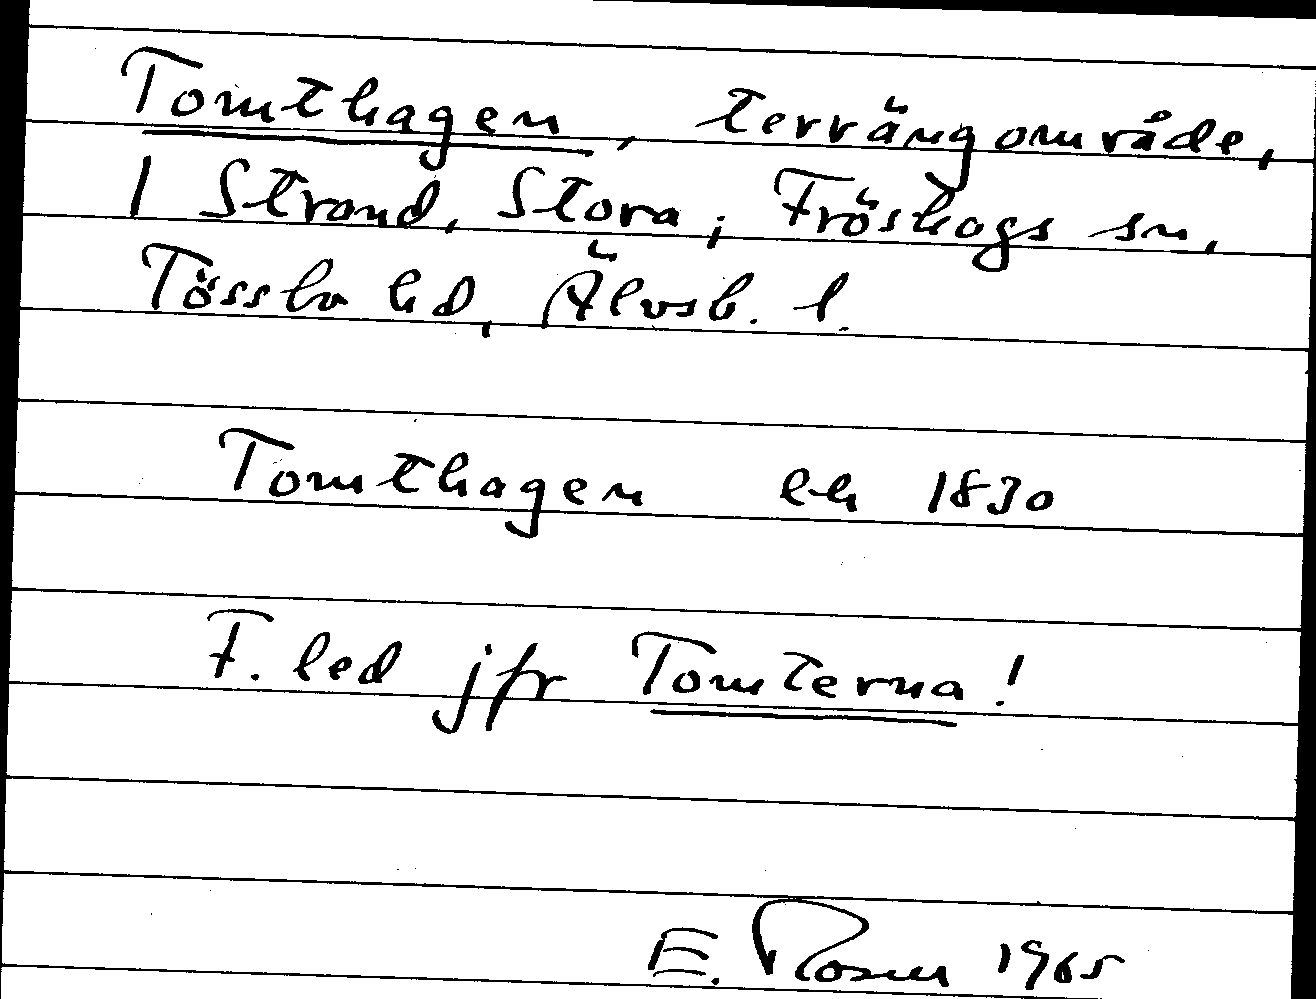 Tomthagen, terrängområde,
1 Strand, Stora; Fröskogs sn,
Tössbo hd, Älvsb. l.
Tomthagen ek 1830
F. led jfr Tomterna!
E. Rosen 1965